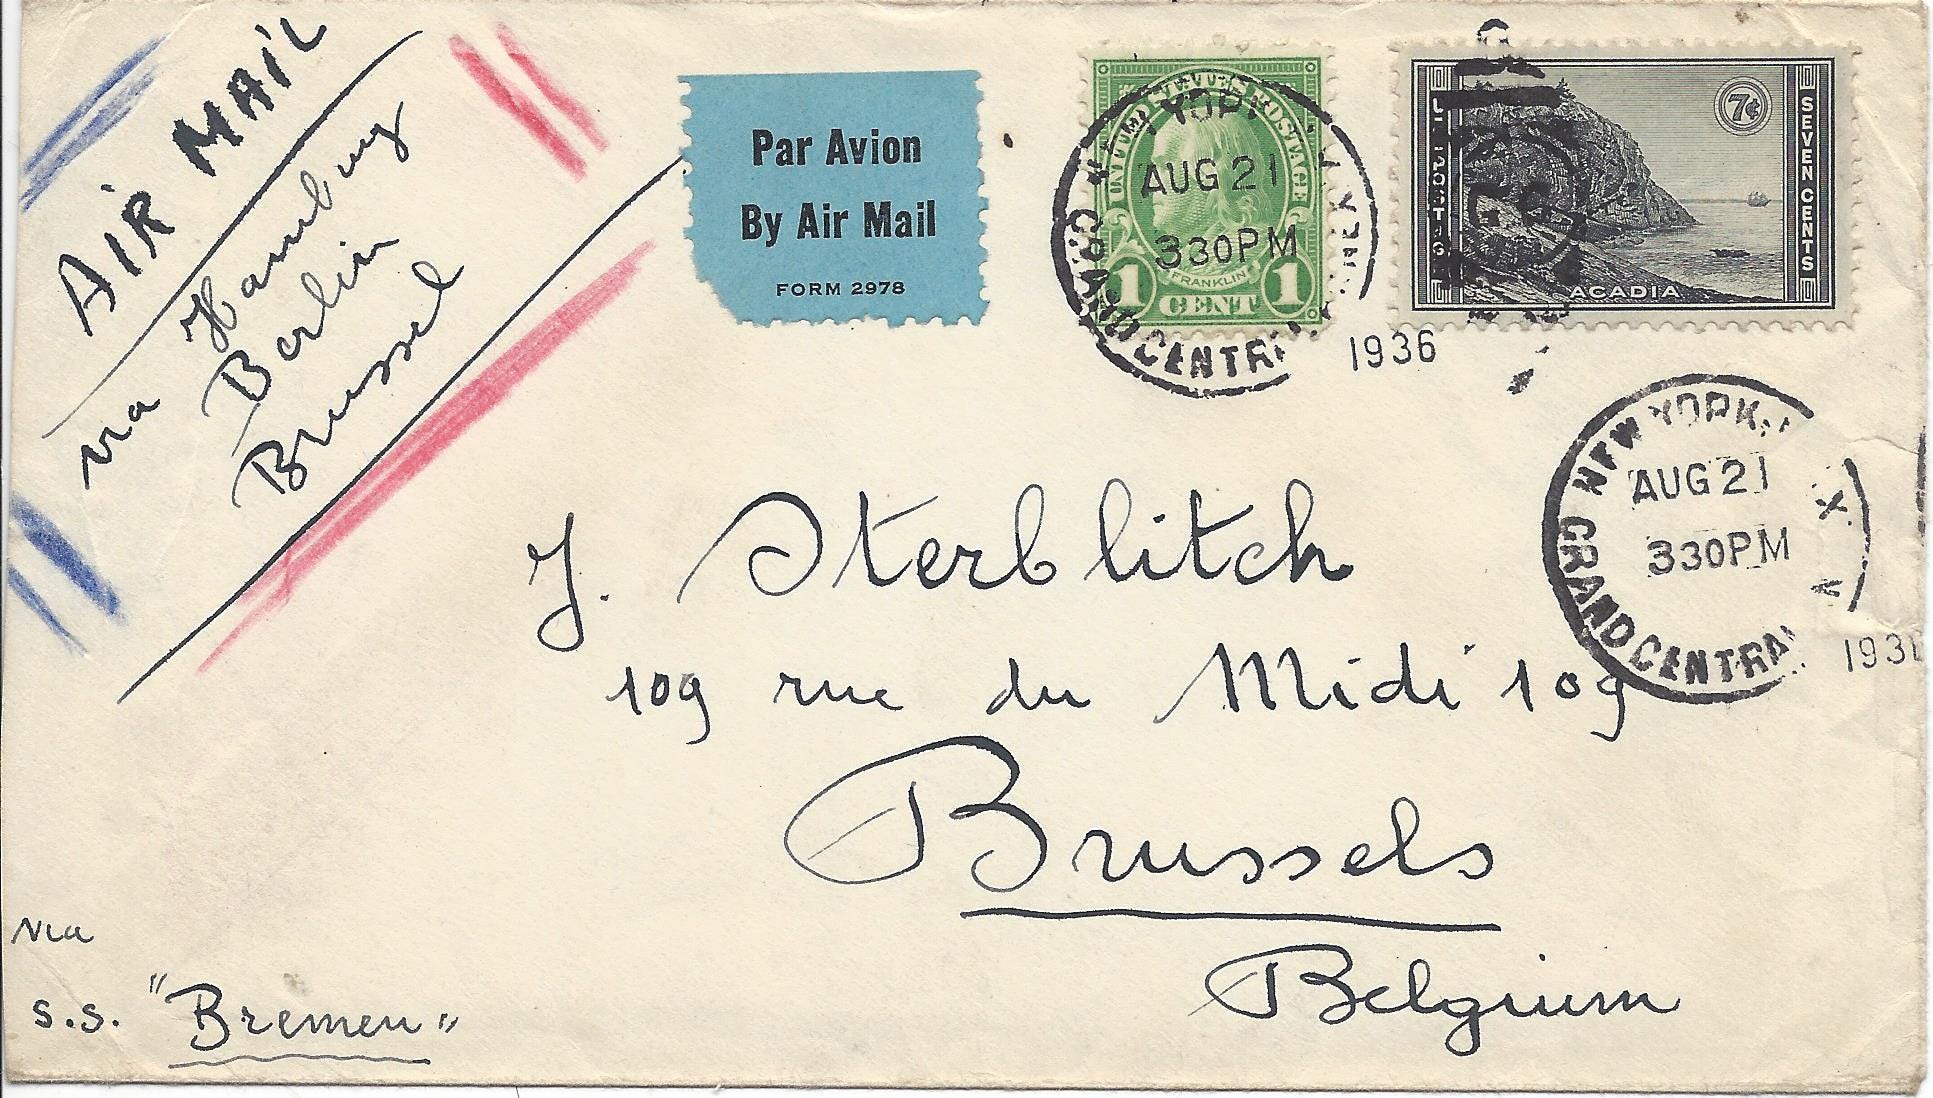 AIR MAIL
via Hamburg
Berlin
Brussel
Par Avion
By Air Mail
FORM 2978
UNITED STATES POSTAGE
FRANKLIN
1 CENT 1
GRAND CENTRAL
AUG 21
330PM
1936
7¢
SEVEN CENTS
ACADIA
NEW YORK, N.Y.
AUG 21
330PM
GRAND CENTRAL
193
J. Sterblitch
109 rue du Midi 109
Brussels
Belgium
via
s.s. "Bremen"